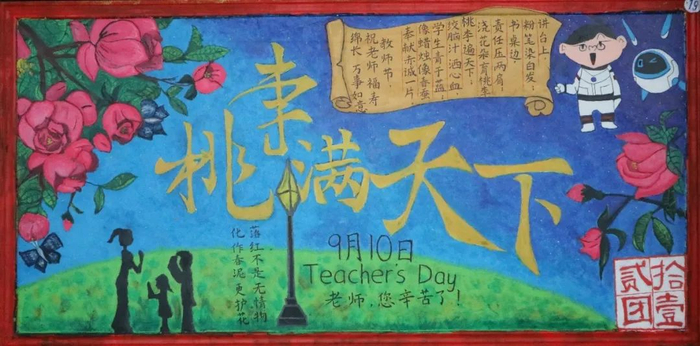 讲台上
粉笔染白发；
书桌边，
责任压两肩；
浇花朵育桃李
桃李遍天下；
绞脑汁洒心血
学生青于蓝；
像蜡烛像春蚕
奉献赤诚一片，
教师节
祝老师福寿
绵长万事如意
桃李满天下
落红不是无情物
化作春泥更护花
9月10日
Teacher's Day
老师，您辛苦了！
拾壹
贰团